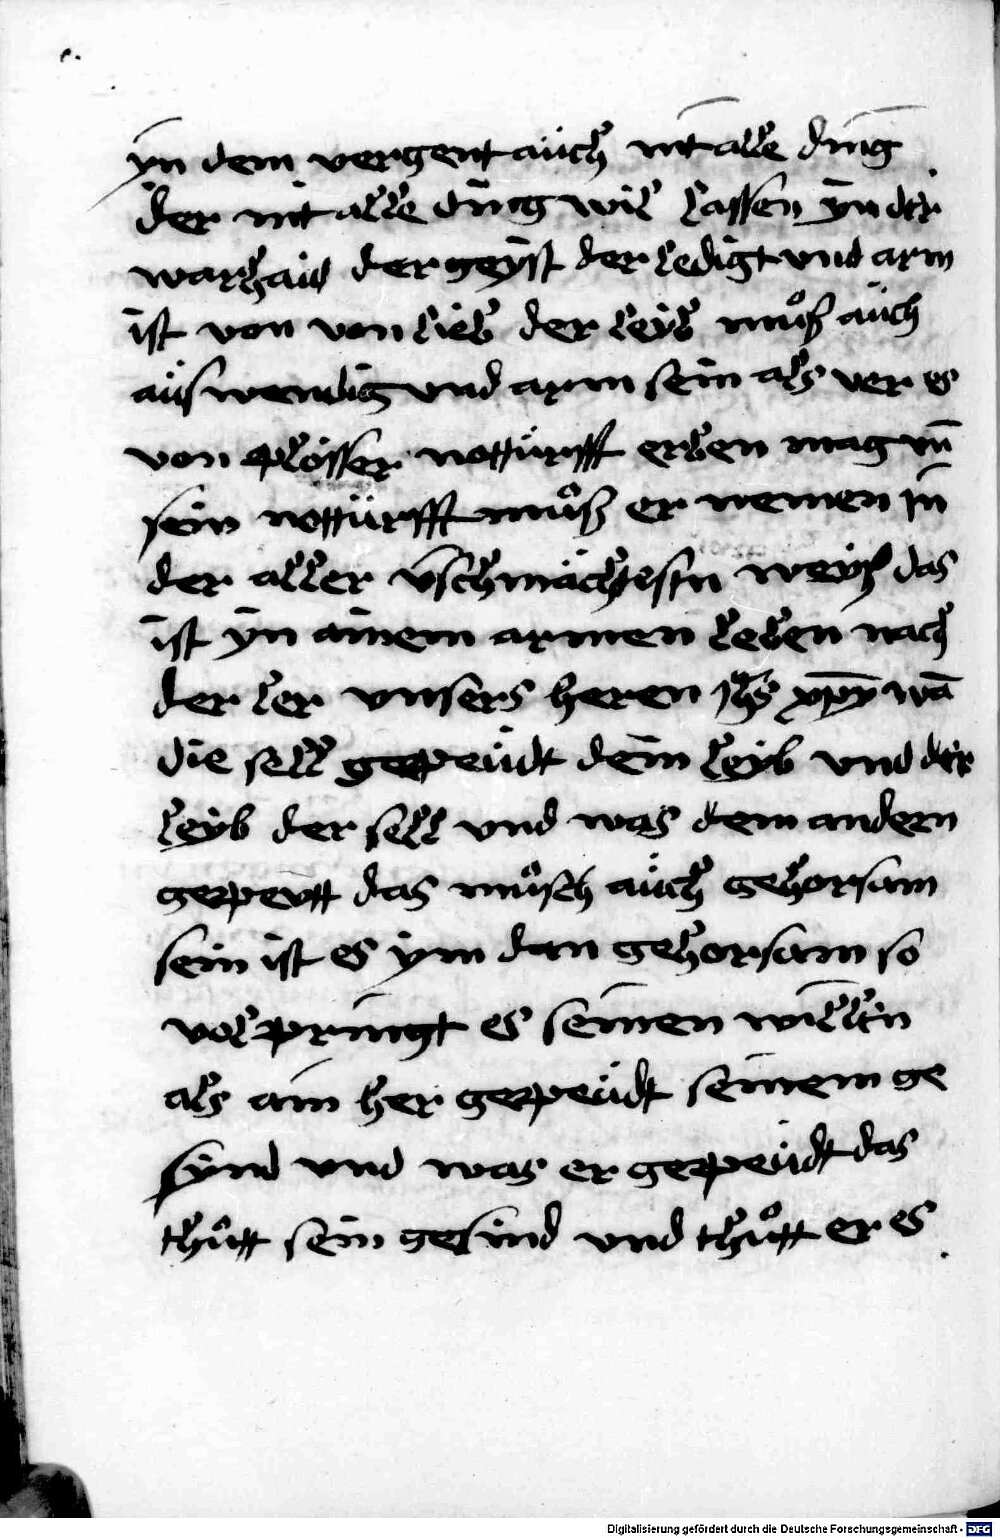 yn dem vergent aüch nit alle ding
der nit alle ding wil lassen yn der
warhaid der geyst der ledigt vnd arm
ist von von lieb der leyb muͦß aüch
aüswendig vnd arm sein als ver es
von plösser nottürfft erben mag vn̄
sein nottürfft muͦß er nemen in
der aller v̄schmächestn weyß das
ist yn ainem armen leben nach
der ler vnsers heren ihs̄ xp̄i wā
die sell gepeüdt dem leyb vnd der
leyb der sell vnd was dem andern
gepeutt das muͦsch aüch gehorsam
sein ist es ym dan gehorsam so
volpringt es seinen willen
als ain her gepeüdt seinem ge
synd vnd was er gepeüdt das
thuͦtt sein gesind vnd thuͦtt er es
Digitalisierung gefördert durch die Deutsche Forschungsgemeinschaft - DFG